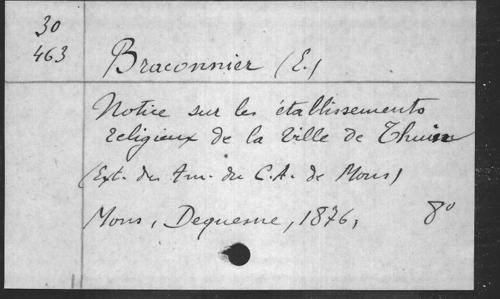 30
463
Braconnier (E.)
Notice sur les établissements
religieux de la ville de Thuin
(Ext. des Ann. du C.A. de Mons)
Mons, Dequesne, 1876, 8°